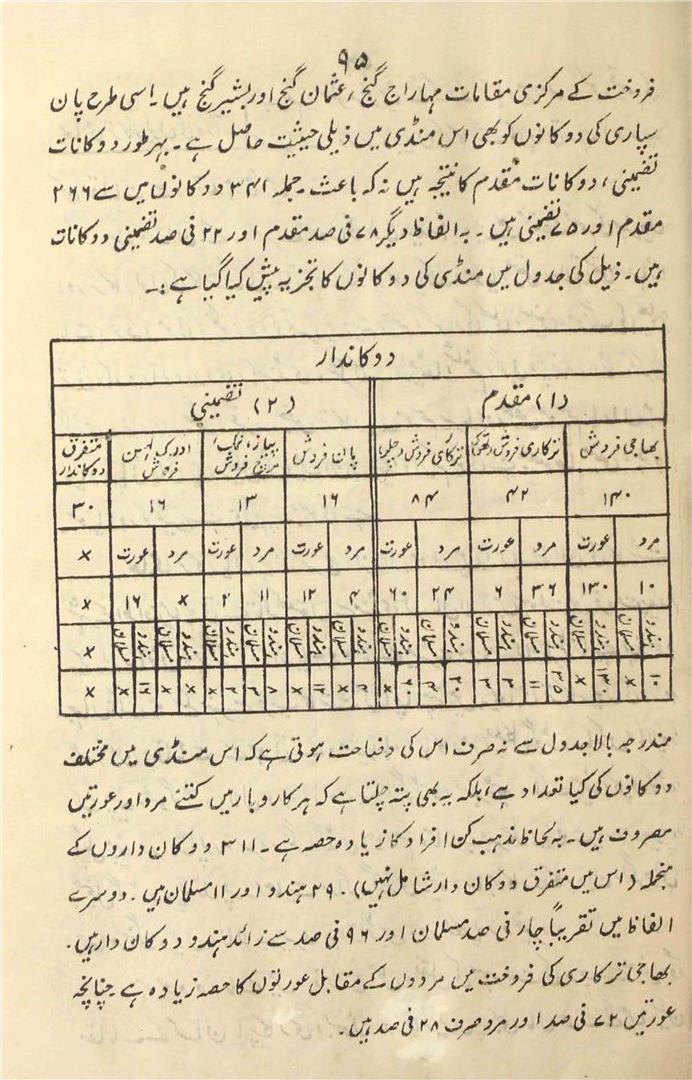 ۹۵
فروخت کے مرکزی مقامات مہاراج گنج، عثمان گنج اور بشیر گنج ہیں۔ اسی طرح پان
سپاری کی دوکانوں کو بھی اس منڈی میں ذیلی حیثیت حاصل ہے۔ بہر طور دوکانات
تضمینی، دوکانات مقدم کا نتیجہ ہیں نہ کہ باعث۔ جملہ ۳۴۱ دوکانوں میں سے ۲۶۶
مقدم اور ۷۵ تضمینی ہیں۔ بہ الفاظ دیگر ۷۸ فی صد مقدم اور ۲۲ فی صد تضمینی دوکانات
ہیں۔ ذیل کی جدول میں منڈی کی دوکانوں کا تجزیہ پیش کیا گیا ہے:۔
دوکاندار
(۱) مقدم (۲) تضمینی
بھاجی فروش ترکاری فروش (تھوک) ترکاری فروش (چلر) پان فروش پیاز، مرچ فروش ادرک لہسن فروش متفرق دوکاندار
۱۴۰ ۴۲ ۸۴ ۱۶ ۱۳ ۱۶ ۳۰
مرد عورت مرد عورت مرد عورت مرد عورت مرد عورت مرد عورت ×
۱۰ ۱۳۰ ۳۶ ۶ ۲۴ ۶۰ ۴ ۱۲ ۱۱ ۲ × ۱۶ ×
ہندو مسلمان ہندو مسلمان ہندو مسلمان ہندو مسلمان ہندو مسلمان ہندو مسلمان ہندو مسلمان ہندو مسلمان ہندو مسلمان ہندو مسلمان ہندو مسلمان ہندو مسلمان ×
۱۰ × ۱۳۰ × ۳۵ ۱۱ ۳ ۳ ۲۰ ۴ ۶۰ × ۴ × ۱۲ × ۸ ۳ ۲ × × × ۱۶ × ×
مندرجہ بالا جدول سے نہ صرف اس کی وضاحت ہوتی ہے کہ اس منڈی میں مختلف
دوکانوں کی کیا تعداد ہے، بلکہ یہ بھی پتہ چلتا ہے کہ ہر کاروبار میں کتنے مرد اور عورتیں
مصروف ہیں۔ بہ لحاظ مذہب کن افراد کا زیادہ حصہ ہے۔ ۳۱۱ دوکان داروں کے
منجملہ (اس میں متفرق دوکان دار شامل نہیں)۔ ۲۹ ہندو اور ۱۱ مسلمان ہیں۔ دوسرے
الفاظ میں تقریباً چار فی صد مسلمان اور ۹۶ فی صد سے زائد ہندو دوکان دار ہیں۔
بھاجی ترکاری کی فروخت میں مردوں کے مقابل عورتوں کا حصہ زیادہ ہے چنانچہ
عورتیں ۷۲ فی صد اور مرد صرف ۲۸ فی صد ہیں۔